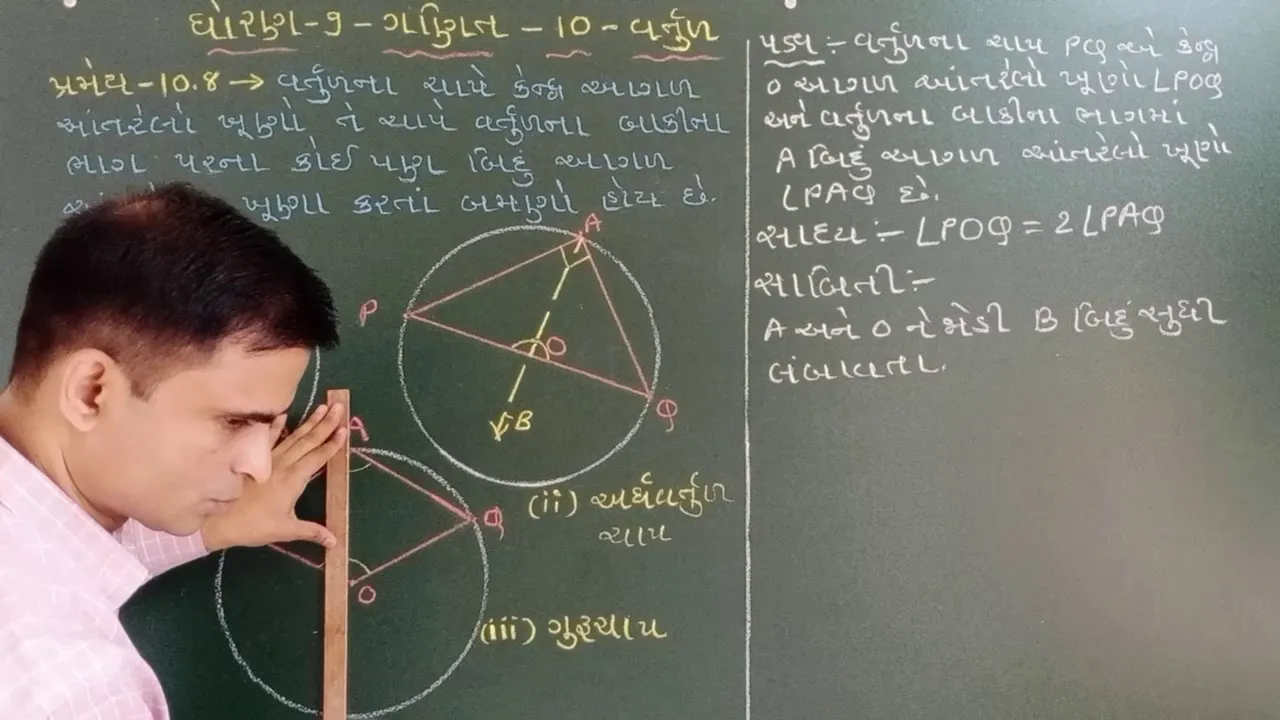 ધોરણ-૭ - ગણિત - 10 - વર્તુળ
પ્રમેય-10.8 → વર્તુળના ચાપે કેન્દ્ર આગળ
આંતરેલો ખૂણો તે ચાપે વર્તુળના બાકીના
ભાગ પરના કોઈ પણ બિંદુ આગળ
ખૂણા કરતાં બમણો હોય છે.
A
P
O
B
Q
(ii) અર્ધવર્તુળ
ચાપ
A
Q
O
(iii) ગુરુચાપ
પક્ષ :- વર્તુળના ચાપ PQ એ કેન્દ્ર
O આગળ આંતરેલો ખૂણો ∠POQ
અને વર્તુળના બાકીના ભાગમાં
A બિંદુ આગળ આંતરેલો ખૂણો
∠PAQ છે.
સાધ્ય :- ∠POQ = 2∠PAQ
સાબિતી :-
A અને O ને જોડી B બિંદુ સુધી
લંબાવતા.